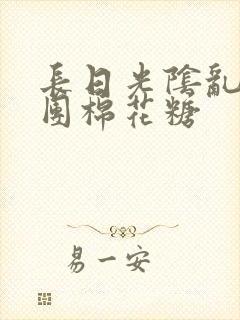 長日光陰亂
團棉花糖
易一安